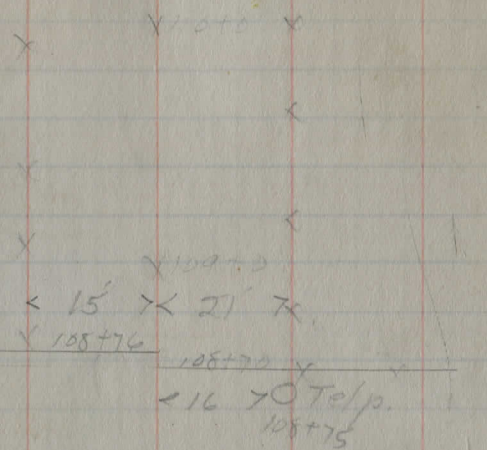 109+0
< 15' >< 21' >
108+76
108+70
< 16 > O Telp.
108+75